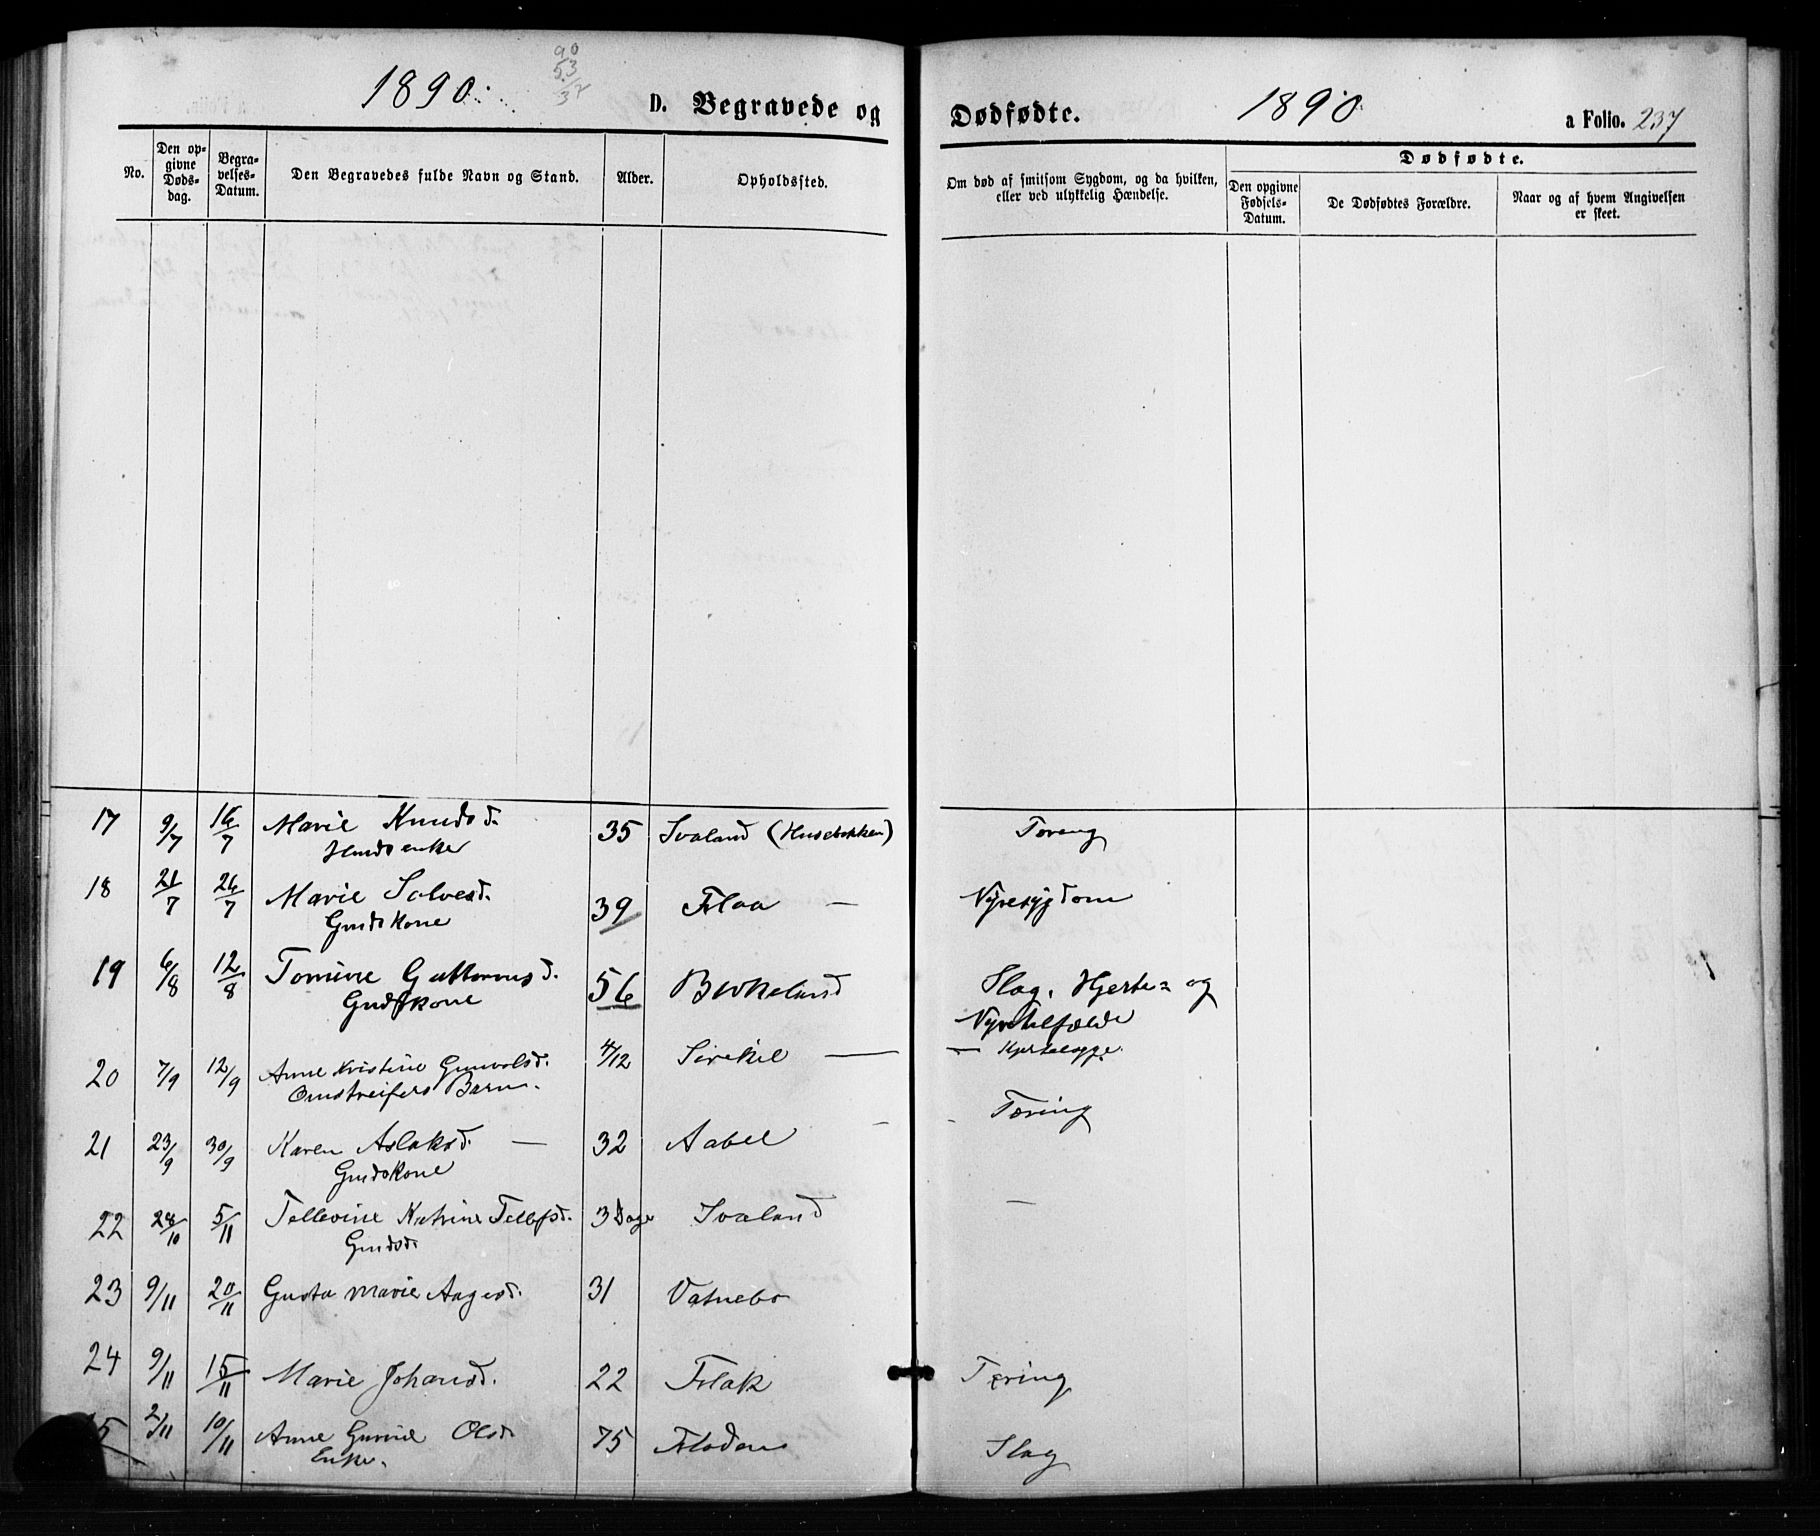 1890.
90
53
37
D. Begravede og
Dødfødte.
1890
a Folio. 237
No.
Den opgivne Dødsdag.
Begravelses-Datum.
Den Begravedes fulde Navn og Stand.
Alder.
Opholdssted.
Om død af smitsom Sygdom, og da hvilken, eller ved ulykkelig Hændelse.
Dødfødte.
Den opgivne Fødsels-Datum.
De Dødfødtes Forældre.
Naar og af hvem Angivelsen er skeet.
17 9/7 16/7 Marie Knudsd. 35 Svaland (Husebakken) Tæring
Husdsenke
18 21/7 26/7 Marie Salvesd. 39 Flaa — Nyresygdom
Gmdskone
19 6/8 12/8 Tomine Guttormsd. 56 Birkeland Slag, Hjerte- og
Gmdskone Nyretilfælde
20 7/9 12/9 Anne Kristine Gunvolsd. 4/12 Sirekil —
Omstreifers Barn.
21 23/9 30/9 Karen Aslaksd. — 32 Aabel — Tæring
Gmdskone
22 28/10 5/11 Tellevine Katrine Tellefsd. 3 Dage Svaland —
Gmdsd.
23 9/11 20/11 Gusta Marie Aagesd. 31 Vatnebo
24 9/11 15/11 Marie Johansd. 22 Flak Tæring
5 2/11 10/11 Anne Gurine Olsd. 75 Flaaden Slag
Enke.